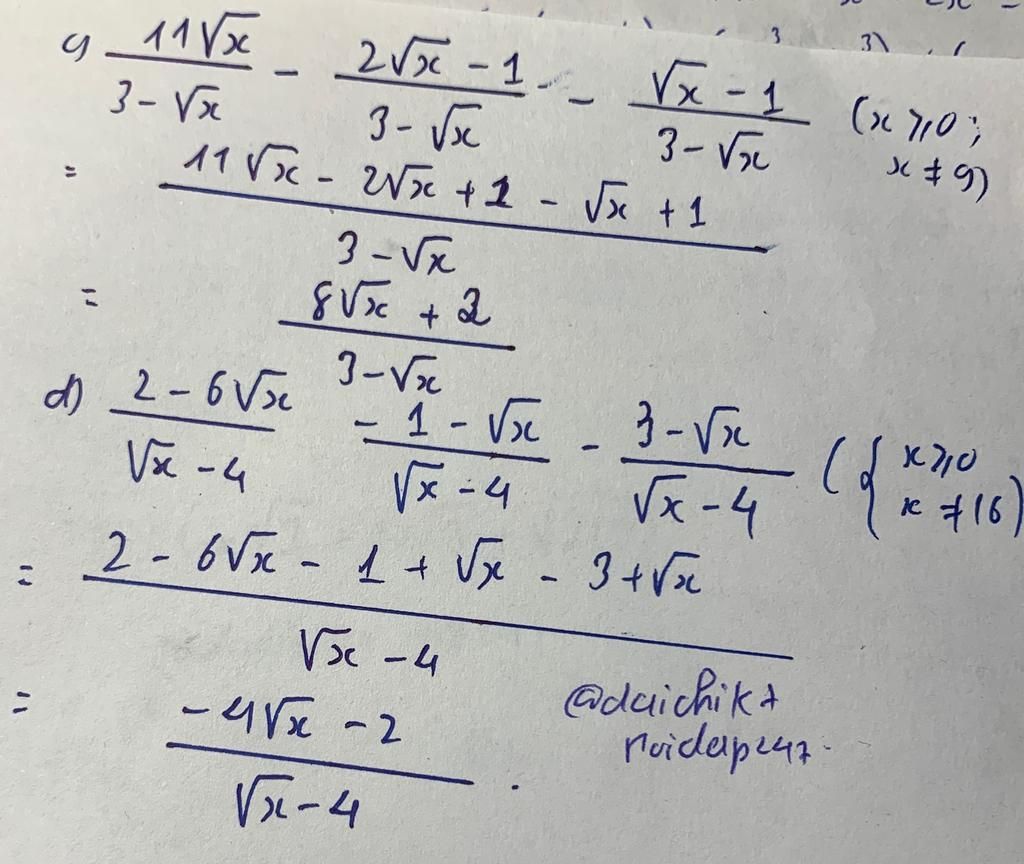 c) 11√x / 3 - √x - 2√x - 1 / 3 - √x - √x - 1 / 3 - √x (x ⩾ 0; x ≠ 9)
= 11√x - 2√x + 1 - √x + 1 / 3 - √x
= 8√x + 2 / 3 - √x
d) 2 - 6√x / √x - 4 - 1 - √x / √x - 4 - 3 - √x / √x - 4 ({ x ⩾ 0 x ≠ 16)
= 2 - 6√x - 1 + √x - 3 + √x / √x - 4
= -4√x - 2 / √x - 4 .
@daichikt